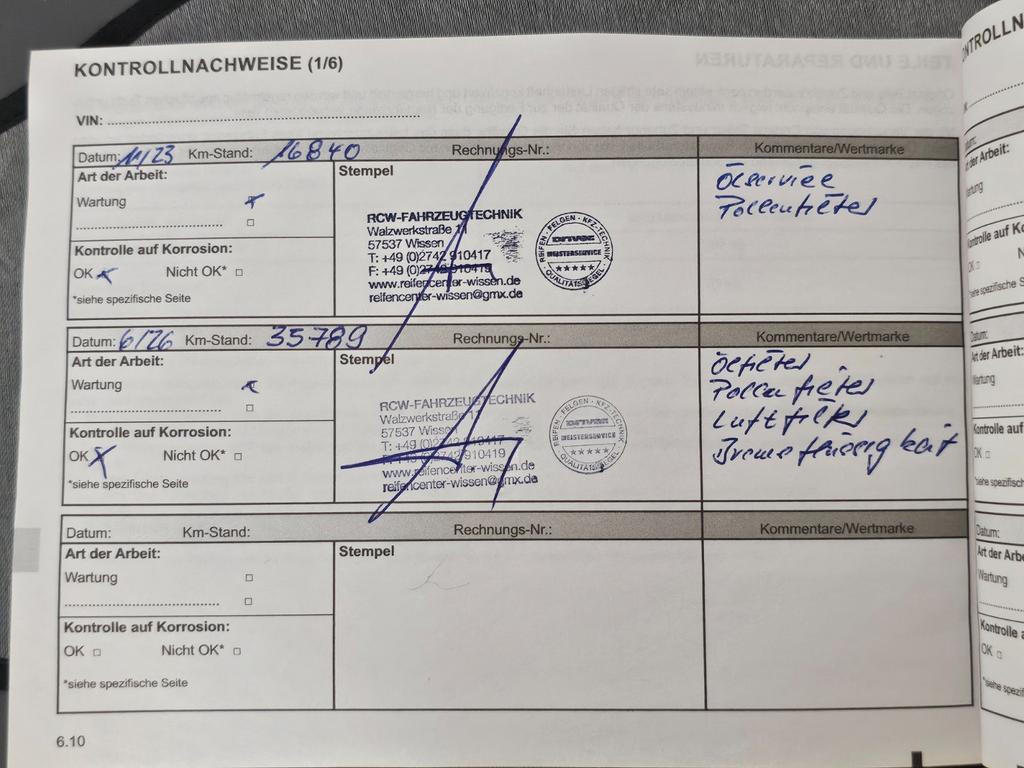 KONTROLLNACHWEISE (1/6)
VIN:
Datum: 11/23 Km-Stand: 16840 Rechnungs-Nr.: Kommentare/Wertmarke
Art der Arbeit:
Wartung
Kontrolle auf Korrosion:
OK Nicht OK*
*siehe spezifische Seite
Stempel
RCW-FAHRZEUGTECHNIK
Walzwerkstraße 11
57537 Wissen
T: +49 (0)2742 910417
F: +49 (0)2742 910419
www.reifencenter-wissen.de
reifencenter-wissen@gmx.de
REIFEN · FELGEN · KFZ-TECHNIK
MEISTERSERVICE
QUALITÄTSSIEGEL
Ölservice
Pollenfilter
Datum: 6/26 Km-Stand: 35789 Rechnungs-Nr.: Kommentare/Wertmarke
Art der Arbeit:
Wartung
Kontrolle auf Korrosion:
OK Nicht OK*
*siehe spezifische Seite
Stempel
RCW-FAHRZEUGTECHNIK
Walzwerkstraße 11
57537 Wissen
T: +49 (0)2742 910417
F: +49 (0)2742 910419
www.reifencenter-wissen.de
reifencenter-wissen@gmx.de
REIFEN · FELGEN · KFZ-TECHNIK
MEISTERSERVICE
QUALITÄTSSIEGEL
Ölfilter
Pollenfilter
Luftfilter
Bremsflüssigkeit
Datum: Km-Stand: Rechnungs-Nr.: Kommentare/Wertmarke
Art der Arbeit:
Wartung
Kontrolle auf Korrosion:
OK Nicht OK*
*siehe spezifische Seite
Stempel
6.10